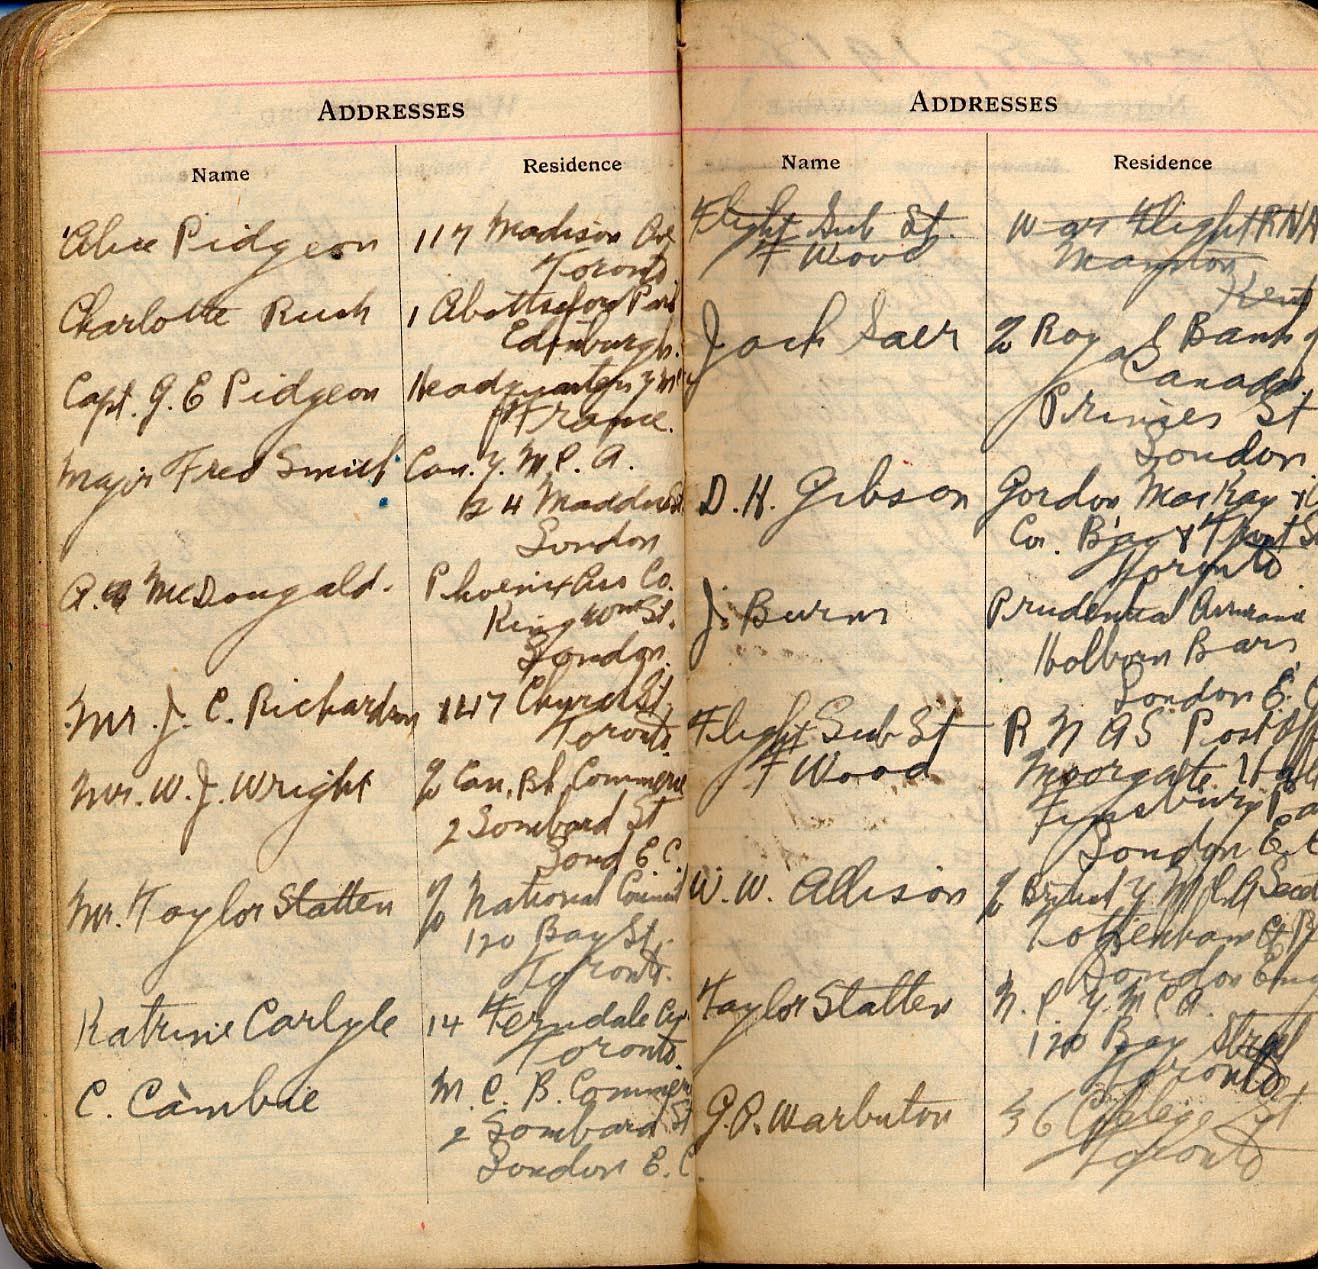 ADDRESSES
Name Residence
Alice Pidgeon 117 Madison Ave
Toronto
Charlotte Rush 1 Abottsford Park
Edinburgh.
Capt. G. E Pidgeon Headquarters
France.
Major Fred Smith Can. Y. M. C. A.
24 Maddox St
London
A. McDougald. Phoenix Ass Co.
King Wm St.
London.
Mr. J. C. Richardson 147 Church St,
Toronto
Mr. W. J. Wright % Can. Bk Commerce
2 Lombard St
Lond E C.
Mr. Taylor Statten % National Council
120 Bay St.
Toronto.
Katrine Carlyle 14 Ferndale
Toronto.
C. Cambie M. C. B. Commer
2 Lombard St
London E. C
ADDRESSES
Name Residence
Flight Sub Lt. War Flight RNA
F Wood Manston
Kent
Jack Saer % Royal Bank of
Canada
Princes St
London
D. H. Gibson Gordon MacKay
Cor. Bay & Front St
Toronto
J. Burns Prudential Assurance
Holborn Bars,
London E. C
Flight Sub Lt R N A S Post Off
F Wood Moorgate Hall
Finsbury Pa
London E. C
W. W. Allison % British Y M C A
Tottenham Ct
London Eng
Taylor Statten N. C. Y. M C A.
120 Bay Street
Toronto
G. P. Warburton 36 College St
Toronto